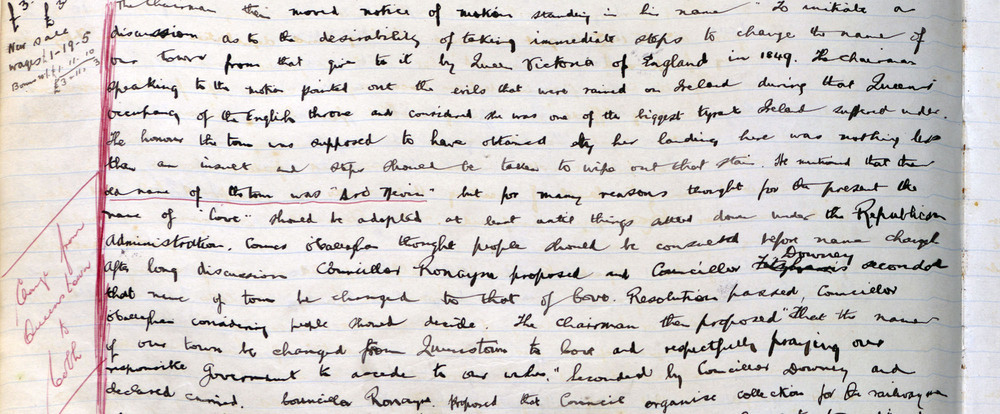 £3. £3
New scale
wages £1-19-5
Bonus W.E. 1. 11. 10
£3-11. 3
The Chairman then moved notice of motion standing in his name "To initiate a
discussion as to the desirability of taking immediate steps to change the name of
our town from that give to it by Queen Victoria of England in 1849. The Chairman
speaking to the motion pointed out the evils that were rained on Ireland during that Queens
occupancy of the English throne and considered she was one of the biggest tyrant Ireland suffered under.
The honour the town was supposed to have obtained by her landing here was nothing less
than an insult and steps should be taken to wipe out that stain. He mentioned that the
old name of the town was "Ard Nevin" but for many reasons thought for the present the
name of "Cove" should be adopted at least until things settled down under the Republican
Administration. Councr O'Callaghan thought people should be consulted before name changed
After long discussion Councillor Ronayne proposed and Councillor Downey seconded
that name of town be changed to that of Cove. Resolution passed, Councillor
O'Callaghan considering people should decide. The Chairman then proposed "That the name
of our town be changed from Queenstown to Cove and respectfully praying our
responsible Government to accede to our wishes." Seconded by Councillor Downey and
declared carried. Councillor Ronayne proposed that Council organise collection for the railwaymen
Change from
Queenstown
to
Cobh